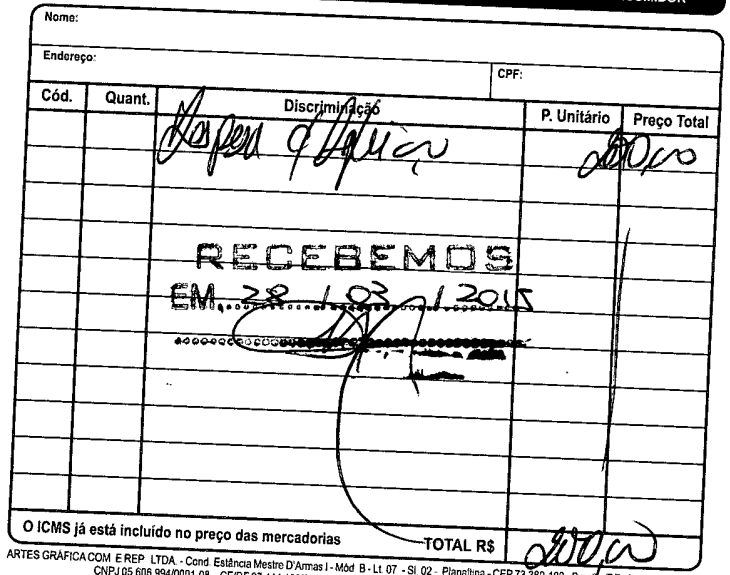 Nome:
Endereço:
CPF:
Cód. Quant. Discriminação P. Unitário Preço Total
200,00
RECEBEMOS
EM 28 / 03 / 2015
O ICMS já está incluído no preço das mercadorias TOTAL R$ 200,00
ARTES GRÁFICA COM E REP LTDA. - Cond. Estância Mestre D'Armas I - Mód B - Lt. 07 - Sl. 02 - Planaltina - CEP 73.380-100
CNPJ 05.606.994/0001-08